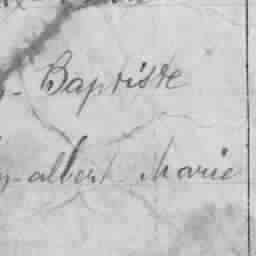 - Baptiste
-albert Marie